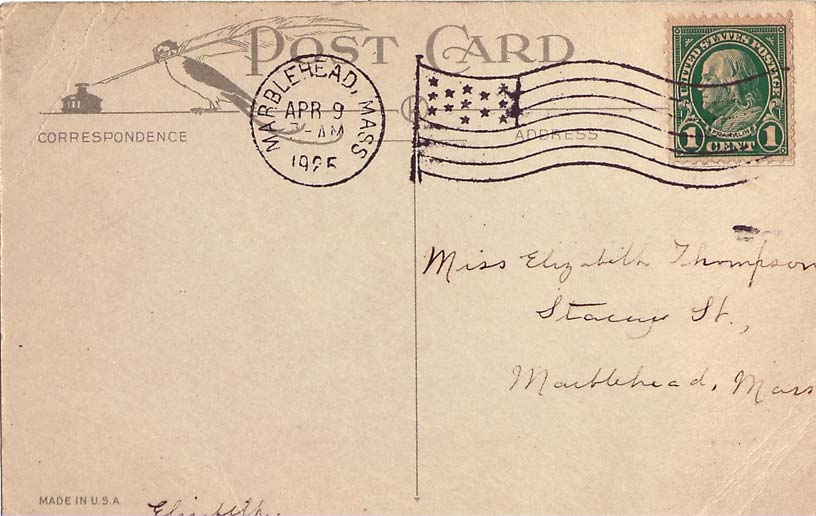 POST CARD
MARBLEHEAD, MASS
APR 9
AM
1925
UNITED STATES POSTAGE
FRANKLIN
1 CENT 1
CORRESPONDENCE
ADDRESS
Miss Elizabeth Thompson
Stacey St.,
Marblehead, Mass
MADE IN U.S.A.
Elizabeth